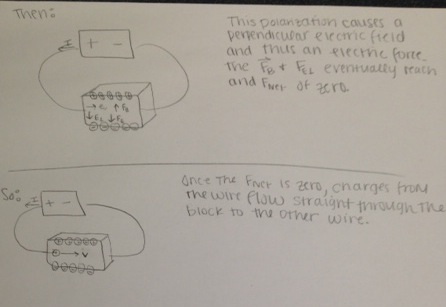 Then:
This polarization causes a
perpendicular electric field
and thus an electric force.
The F_B + F_E⊥ eventually reach
and F_NET of zero.
I
+ -
→ e ↑ F_B
↓ E⊥ ↓ F_E
So:
Once the F_NET is zero, charges from
the wire flow straight through the
block to the other wire.
I
+ -
→ v